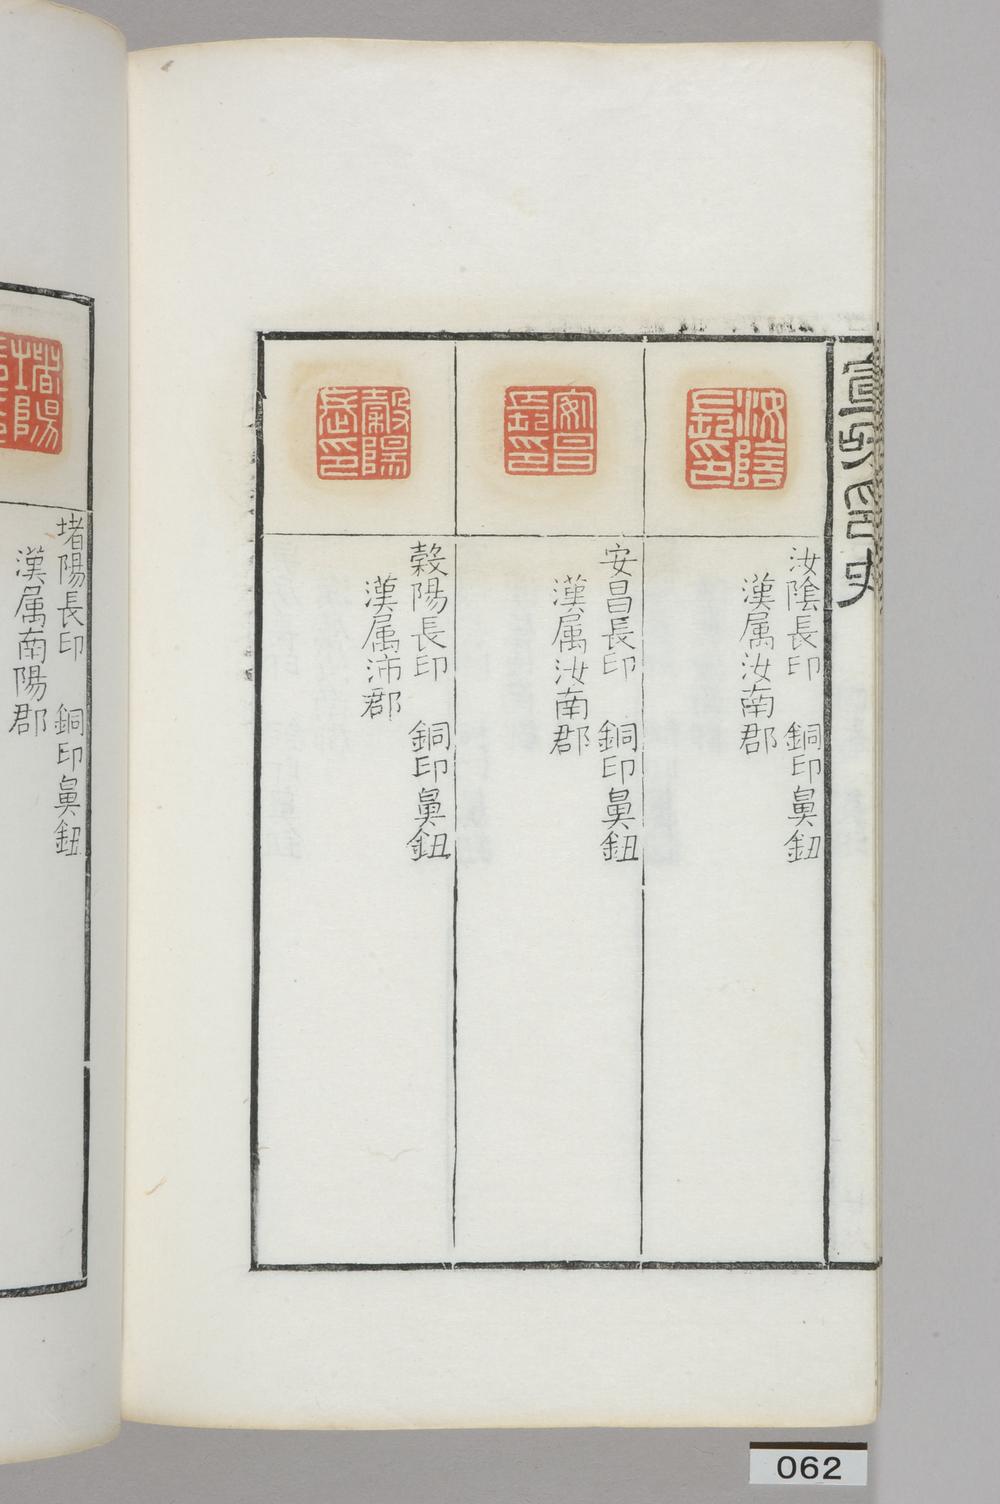 宣和印史
汝陰長印
汝陰長印 銅印鼻鈕
漢属汝南郡
安昌長印
安昌長印 銅印鼻鈕
漢属汝南郡
穀陽長印
穀陽長印 銅印鼻鈕
漢属沛郡
堵陽
堵陽長印 銅印鼻鈕
漢属南陽郡
062